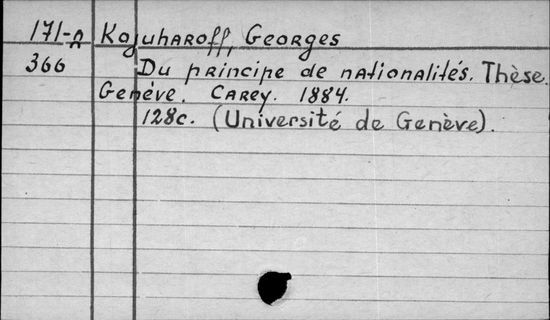 171-n Kojuharoff, Georges
366 Du principe de nationalités. Thèse.
Genève. Carey. 1884.
128c. (Université de Genève).